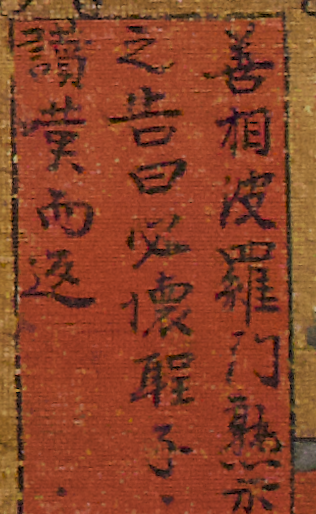 善相波羅門熟示
之告曰必懷聖子
讚黃而返